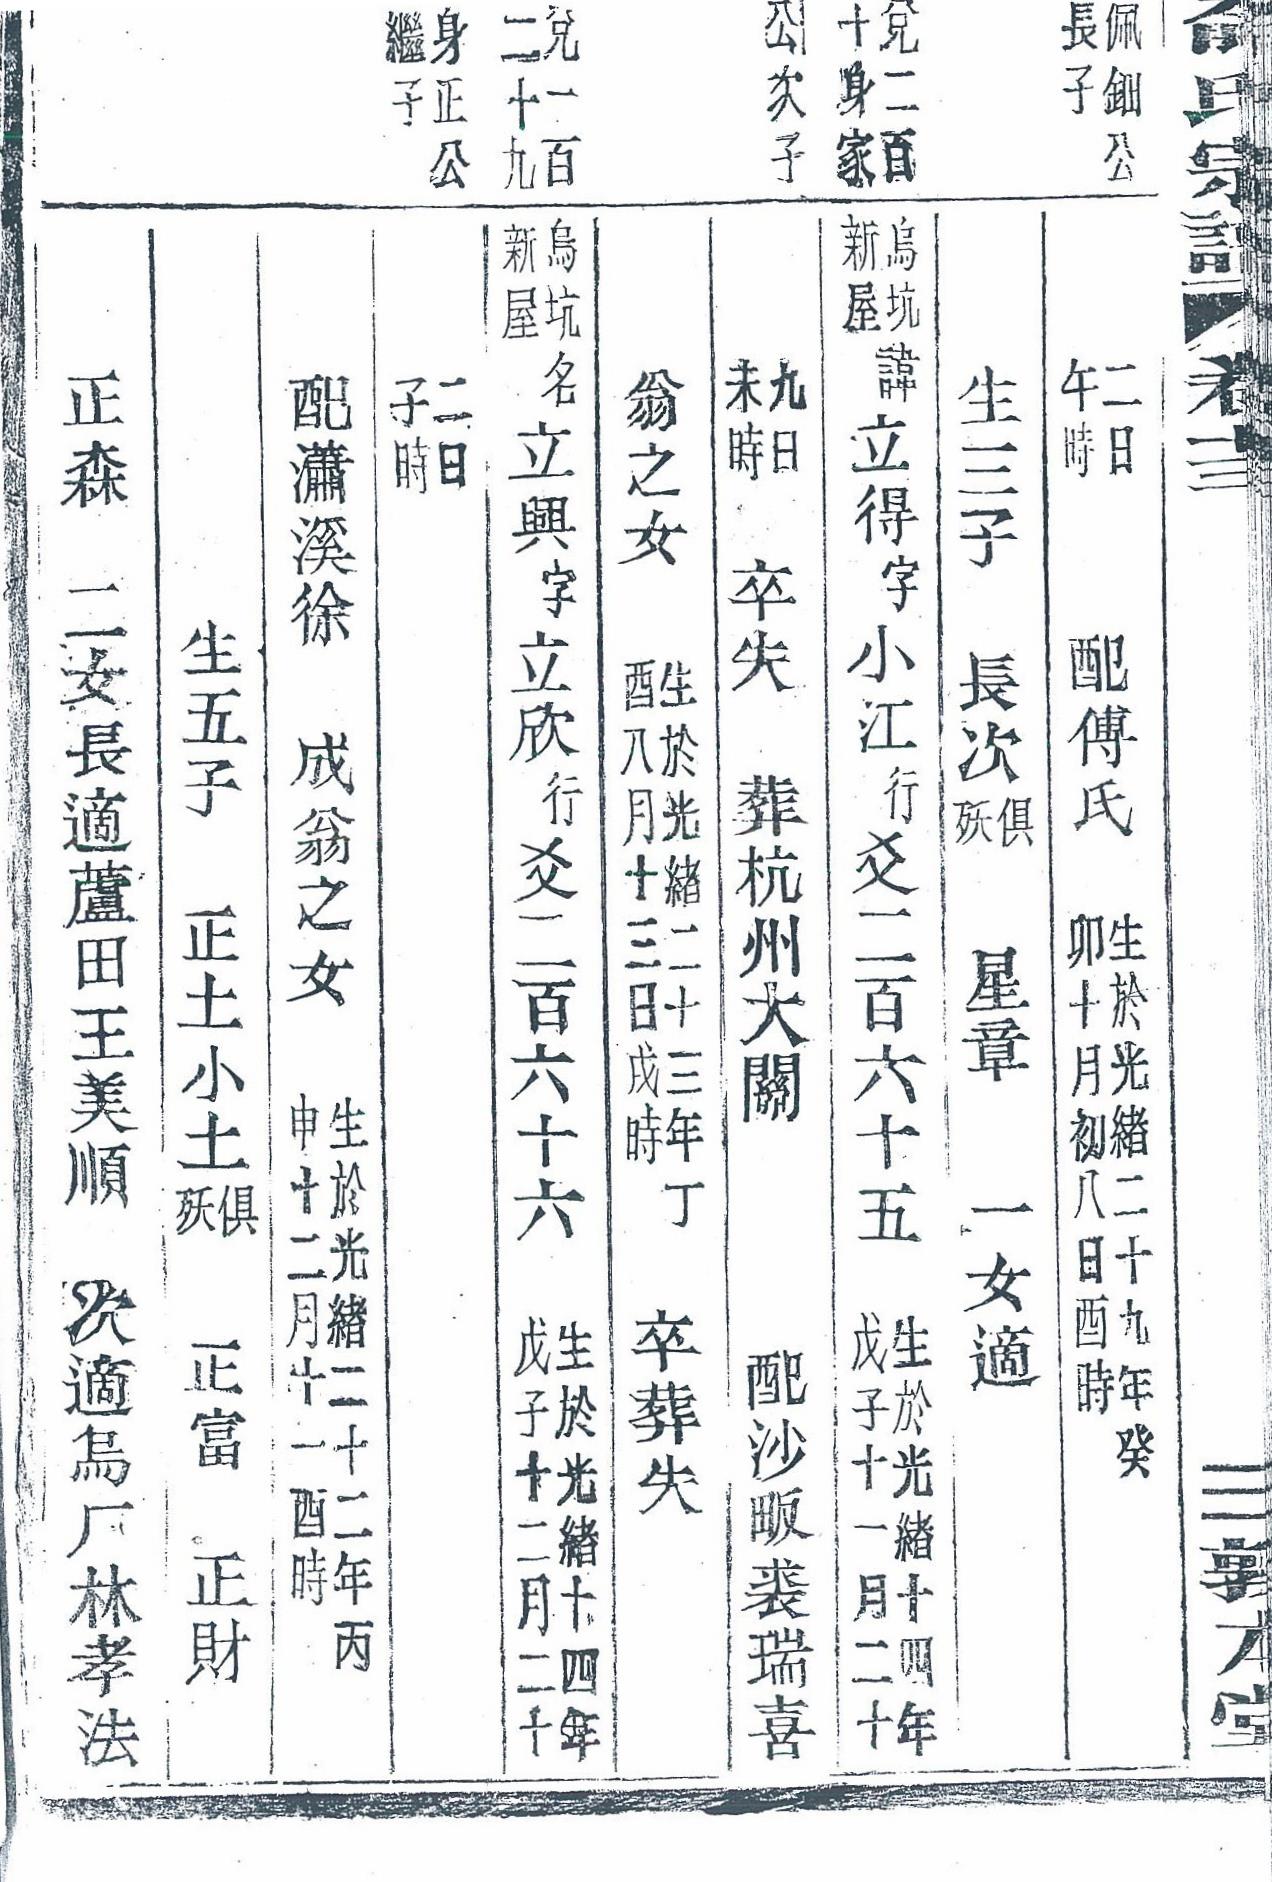 氏宗譜 卷 三 敦本堂
佩鈿公
長子
二日
午時 配傅氏 生於光緒二十九年癸
卯十月初八日酉時
生三子 長次俱
殀 星章 一女適
兌二百
十身家
烏坑
新屋 諱立得字小江行爻二百六十五 生於光緒十四年
戊子十一月二十
公次子
九日
未時 卒失 葬杭州大關 配沙畈裘瑞喜
翁之女 生於光緒二十三年丁
酉八月十三日戌時 卒葬失
兌一百
二十九
烏坑
新屋 名立興字立欣行爻二百六十六 生於光緒十四年
戊子十二月二十
身正公
繼子
二日
子時
配瀟溪徐 成翁之女 生於光緒二十二年丙
申十二月廿一酉時
生五子 正土小土俱
殀 正富 正財
正森 二女長適蘆田王美順 次適烏厂林孝法